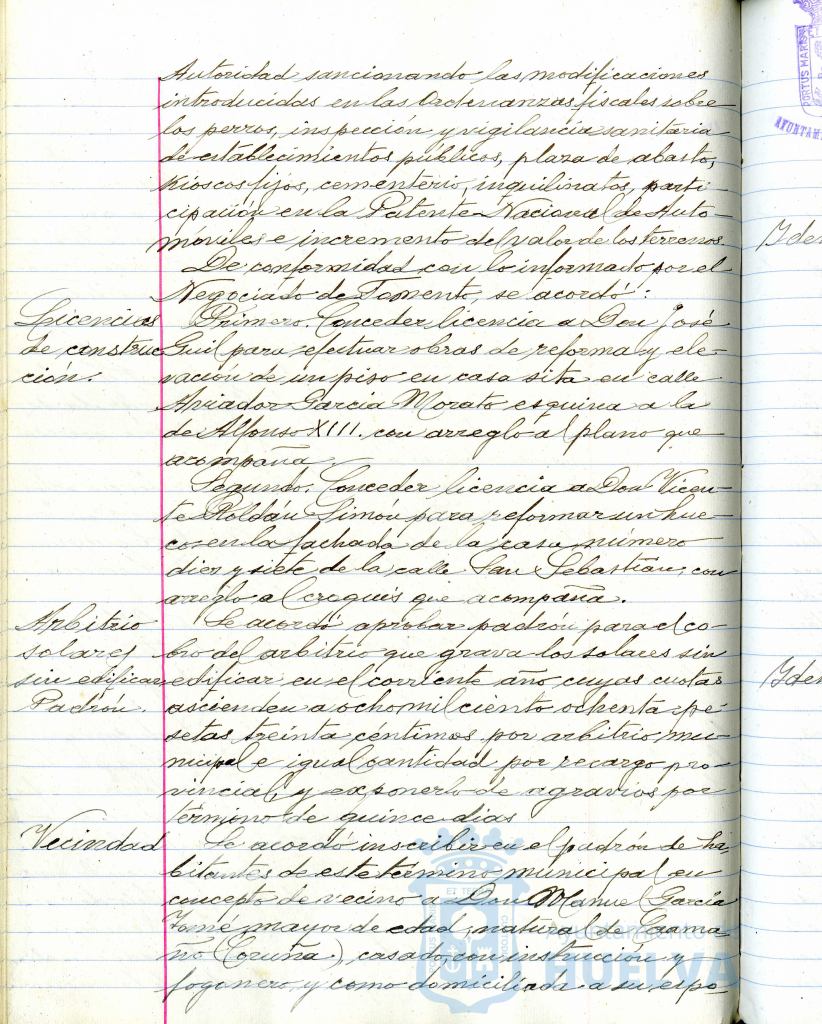 Autoridad sancionando las modificaciones
introducidas en las Ordenanzas fiscales sobre
los perros, inspección y vigilancia sanitaria
de establecimientos públicos, plaza de abasto,
kioscos fijos, cementerio, inquilinatos, parti-
cipación en la Patente Nacional de Auto-
móviles e incremento del valor de los terrenos.
De conformidad con lo informado por el
Negociado de Fomento, se acordó:
Licencias
de construc
ción.
Primero. Conceder licencia a Don José
Guil para efectuar obras de reforma y ele-
vación de un piso en casa sita en calle
Aviador García Morato esquina a la
de Alfonso XIII. con arreglo al plano que
acompaña.
Segundo. Conceder licencia a Don Vicen-
te Roldán Simón para reformar un hue-
co en la fachada de la casa número
diez y siete de la calle San Sebastián, con
arreglo al croquis que acompaña.
Arbitrio
solares
sin edificar
Padrón.
Se acordó aprobar padrón para el co-
bro del arbitrio que grava los solares sin
edificar en el corriente año cuyas cuotas
ascienden a ocho mil ciento ochenta pe-
setas treinta céntimos por arbitrio mu-
nicipal e igual cantidad por recargo pro-
vincial, y exponerlo de agravios por
término de quince días
Vecindad
Se acordó inscribir en el padrón de ha-
bitantes de este término municipal en
concepto de vecino a Don Manuel García
Tomé, mayor de edad, natural de Caama-
ño (Coruña), casado, con instrucción y
fogonero, y como domiciliada a su espo
Iden
Iden
PORTUS MARIS
AYUNTAM
Ayuntamiento
HUELVA